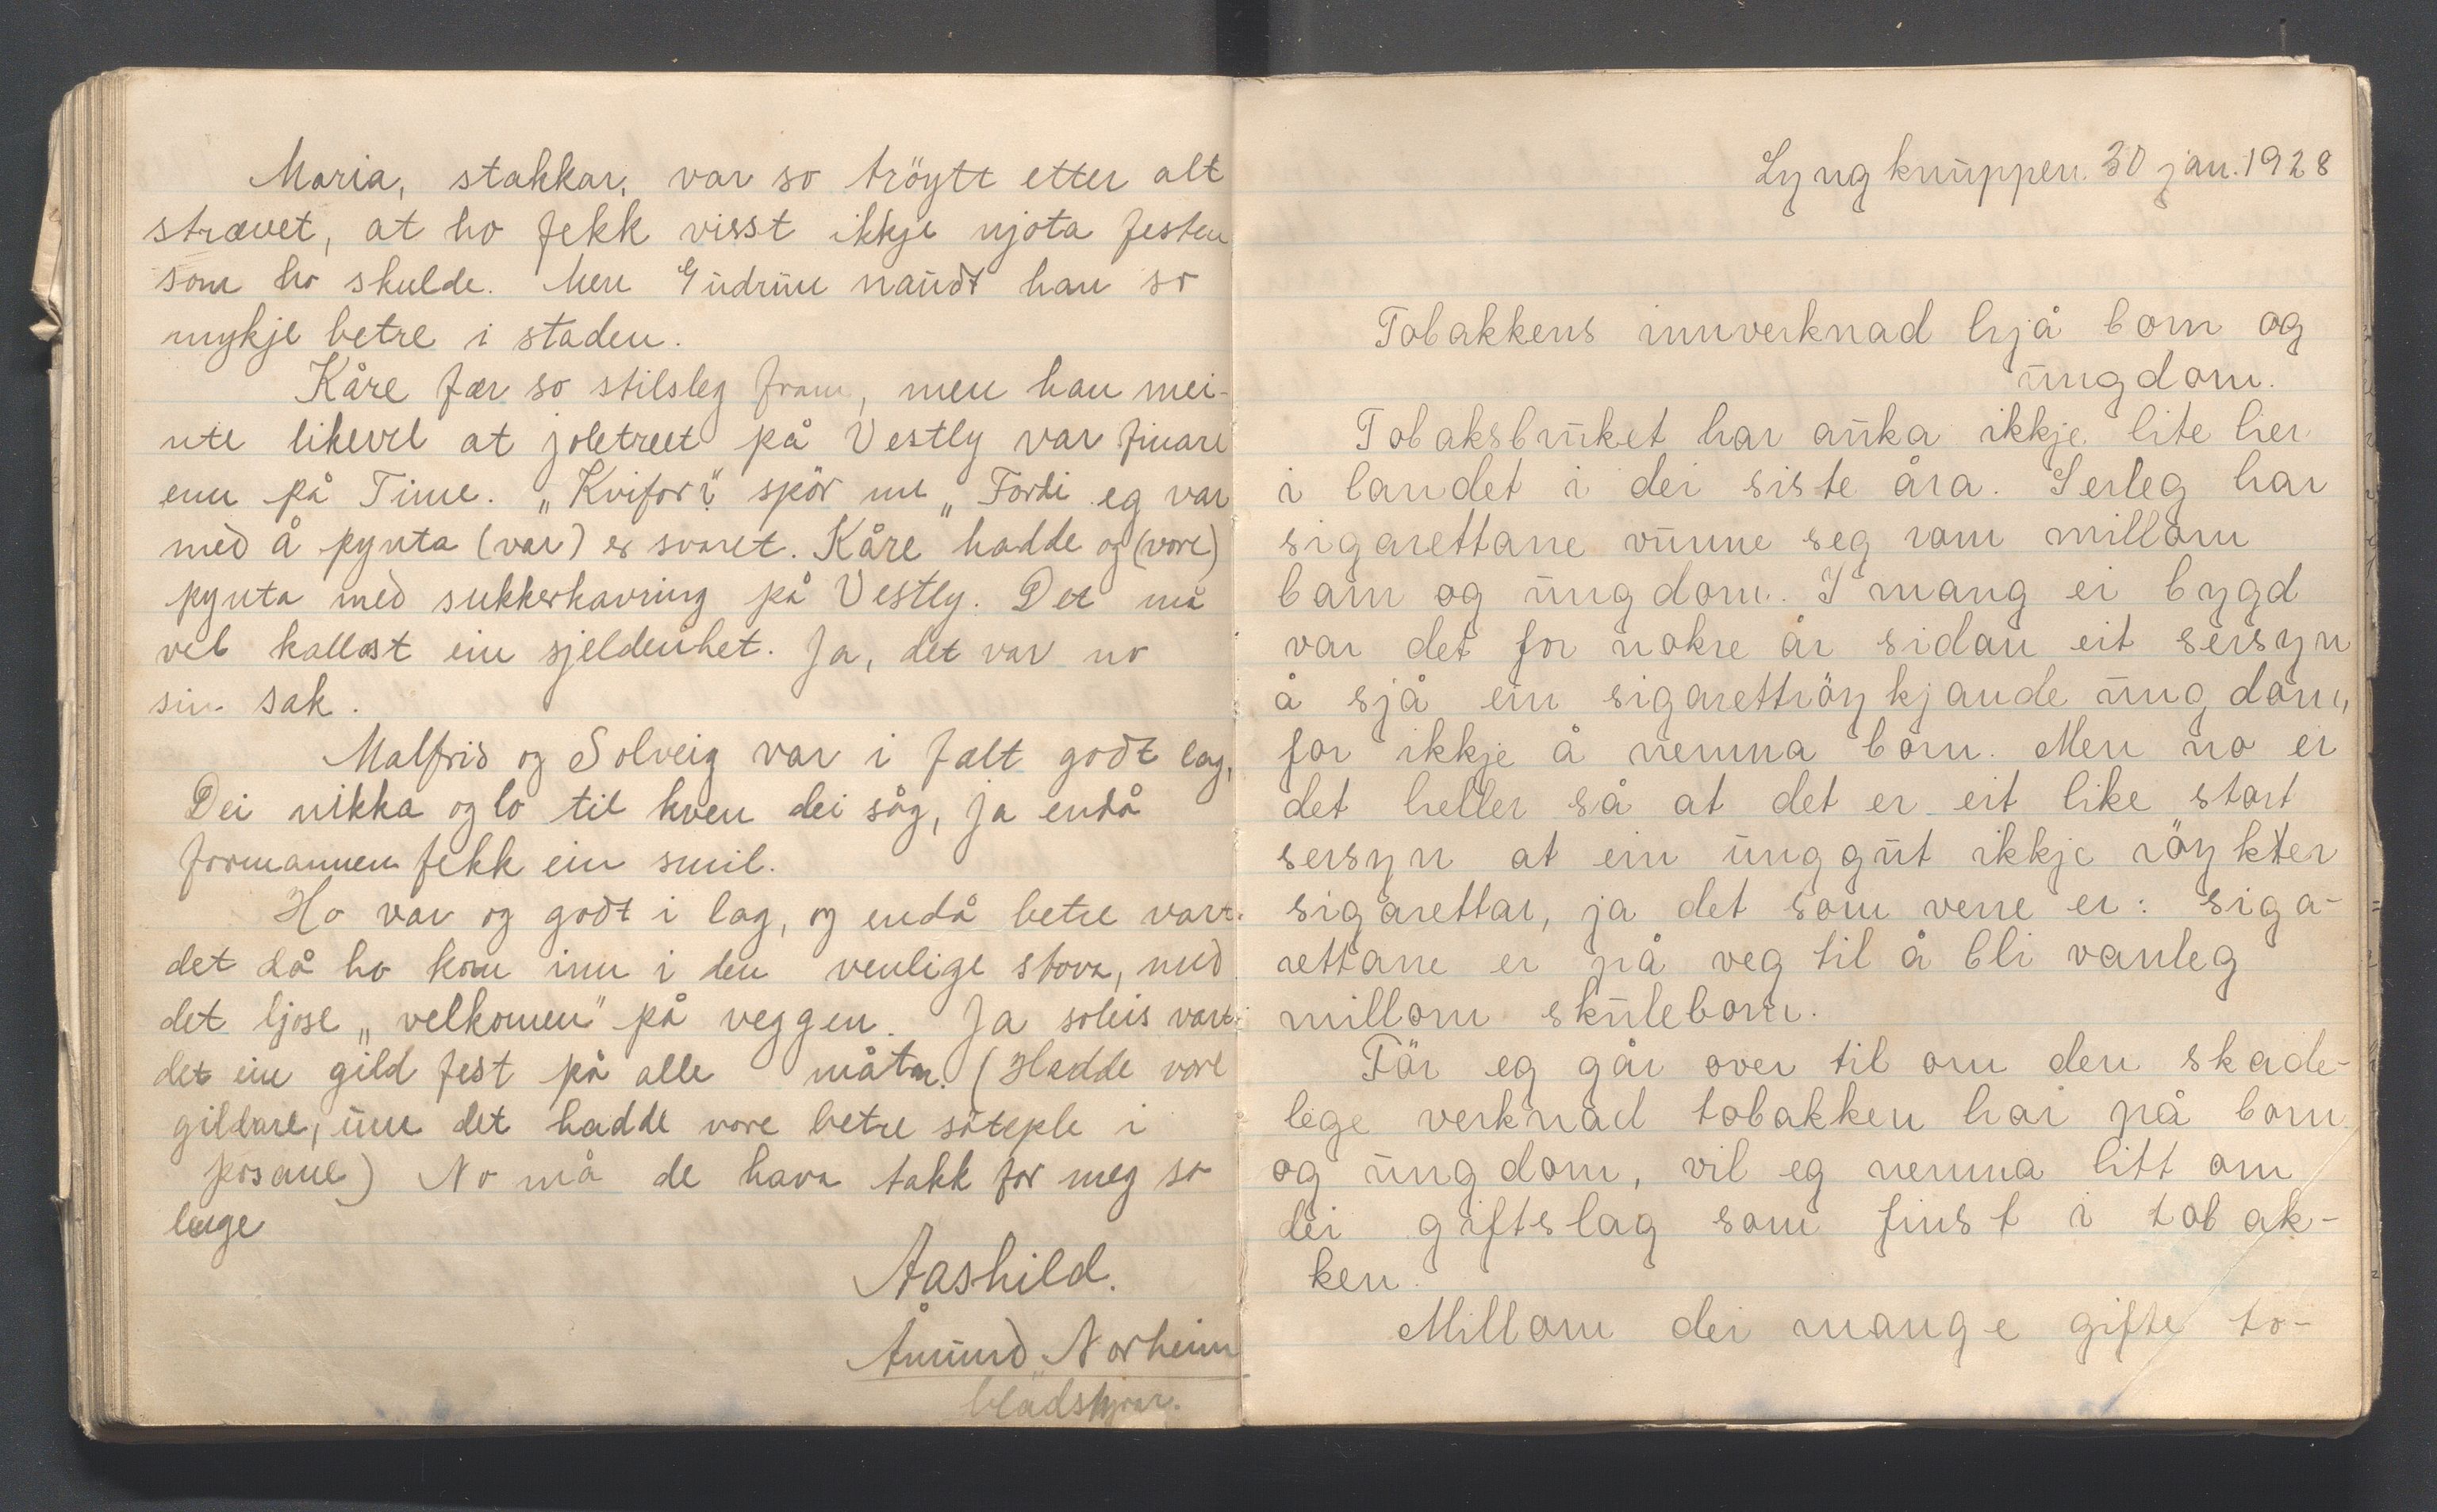 Maria, stakkar, var so tröytt etter alt
strævet, at ho fekk visst ikkje njota festen
som ho skulde. Men Gudrun naudt han so
mykje betre i staden.
Kåre fær so stilsleg fram, men han mei-
nte likevel at joletreet på Vestly var finare
enn på Time. „Kvifor?" spör me „Fordi eg var
med å pynta (var) er svaret. Kåre hadde og (vore)
pynta med sukkerhavring på Vestly. Det må
vel kallast ein sjeldenhet. Ja, det var no
sin sak.
Malfrid og Solveig var i fælt godt lag,
Dei nikka og lo til kven dei såg, ja endå
formannen fekk ein smil.
Ho var og godt i lag, og endå betre vart
det då ho kom inn i den venlige stova, med
det ljose „velkomen" på veggen. Ja soleis vart
det ein gild fest på alle måtar. (Hadde vore
gildare, um det hadde vore betre söteple i
posane) No må de hava takk for meg so
lenge
Aashild.
Åmund Norheim
bladskjvar.
Lyngknuppen 30 jan. 1928
Tobakkens innverknad hjå born og
ungdom.
Tobaksbruket har auka ikkje lite her
i landet i dei siste åra. Serleg har
sigarettane vunne seg rom millom
born og ungdom. I mang ei bygd
var det for nokre år sidan eit sersyn
å sjå ein sigarettröykjande ungdom,
for ikkje å nemna born. Men no er
det heller så at det er eit like stort
sersyn at ein unggut ikkje röykter
sigarettar, ja det som verre er: siga-
rettane er på veg til å bli vanleg
millom skuleborn.
För eg går over til om den skade-
lege verknad tobakken har på born
og ungdom, vil eg nemna litt om
dei giftslag som finst i tobak-
ken.
Millom dei mange gifte to-